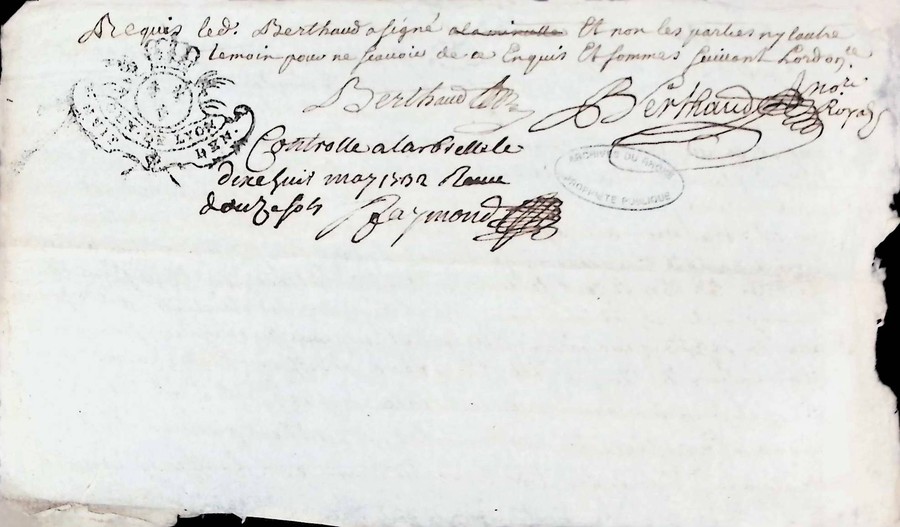 Requis led. Berthaud a signé a la minutte Et non les parties ny lautre
temoin pour ne scavoir de ce Enquis Et sommes suivant Lordon.ce
Berthaud
Berthaud no.re
Royal
LYON
Controllé a larbrelle le
dixe huit may 1732 Receu
douze sols Raymond
ARCHIVES DU RHONE
PROPRIÉTÉ PUBLIQUE